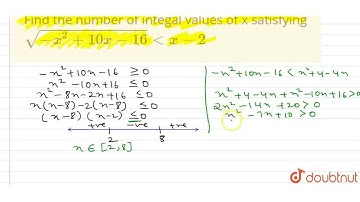 Find the number of integal values of x satisfying
√-x² + 10x - 16 < x - 2
-x² + 10x - 16 ≥ 0
x² - 10x + 16 ≤ 0
x² - 8x - 2x + 16 ≤ 0
x(x-8) - 2(x-8) ≤ 0
(x-8) (x-2) ≤ 0
+ve -ve +ve
2 8
x ∈ [2,8]
-x² + 10x - 16 < x² + 4 - 4x
x² + 4 - 4x + x² - 10x + 16 > 0
2x² - 14x + 20 > 0
x² - 7x + 10 > 0
doubtnut